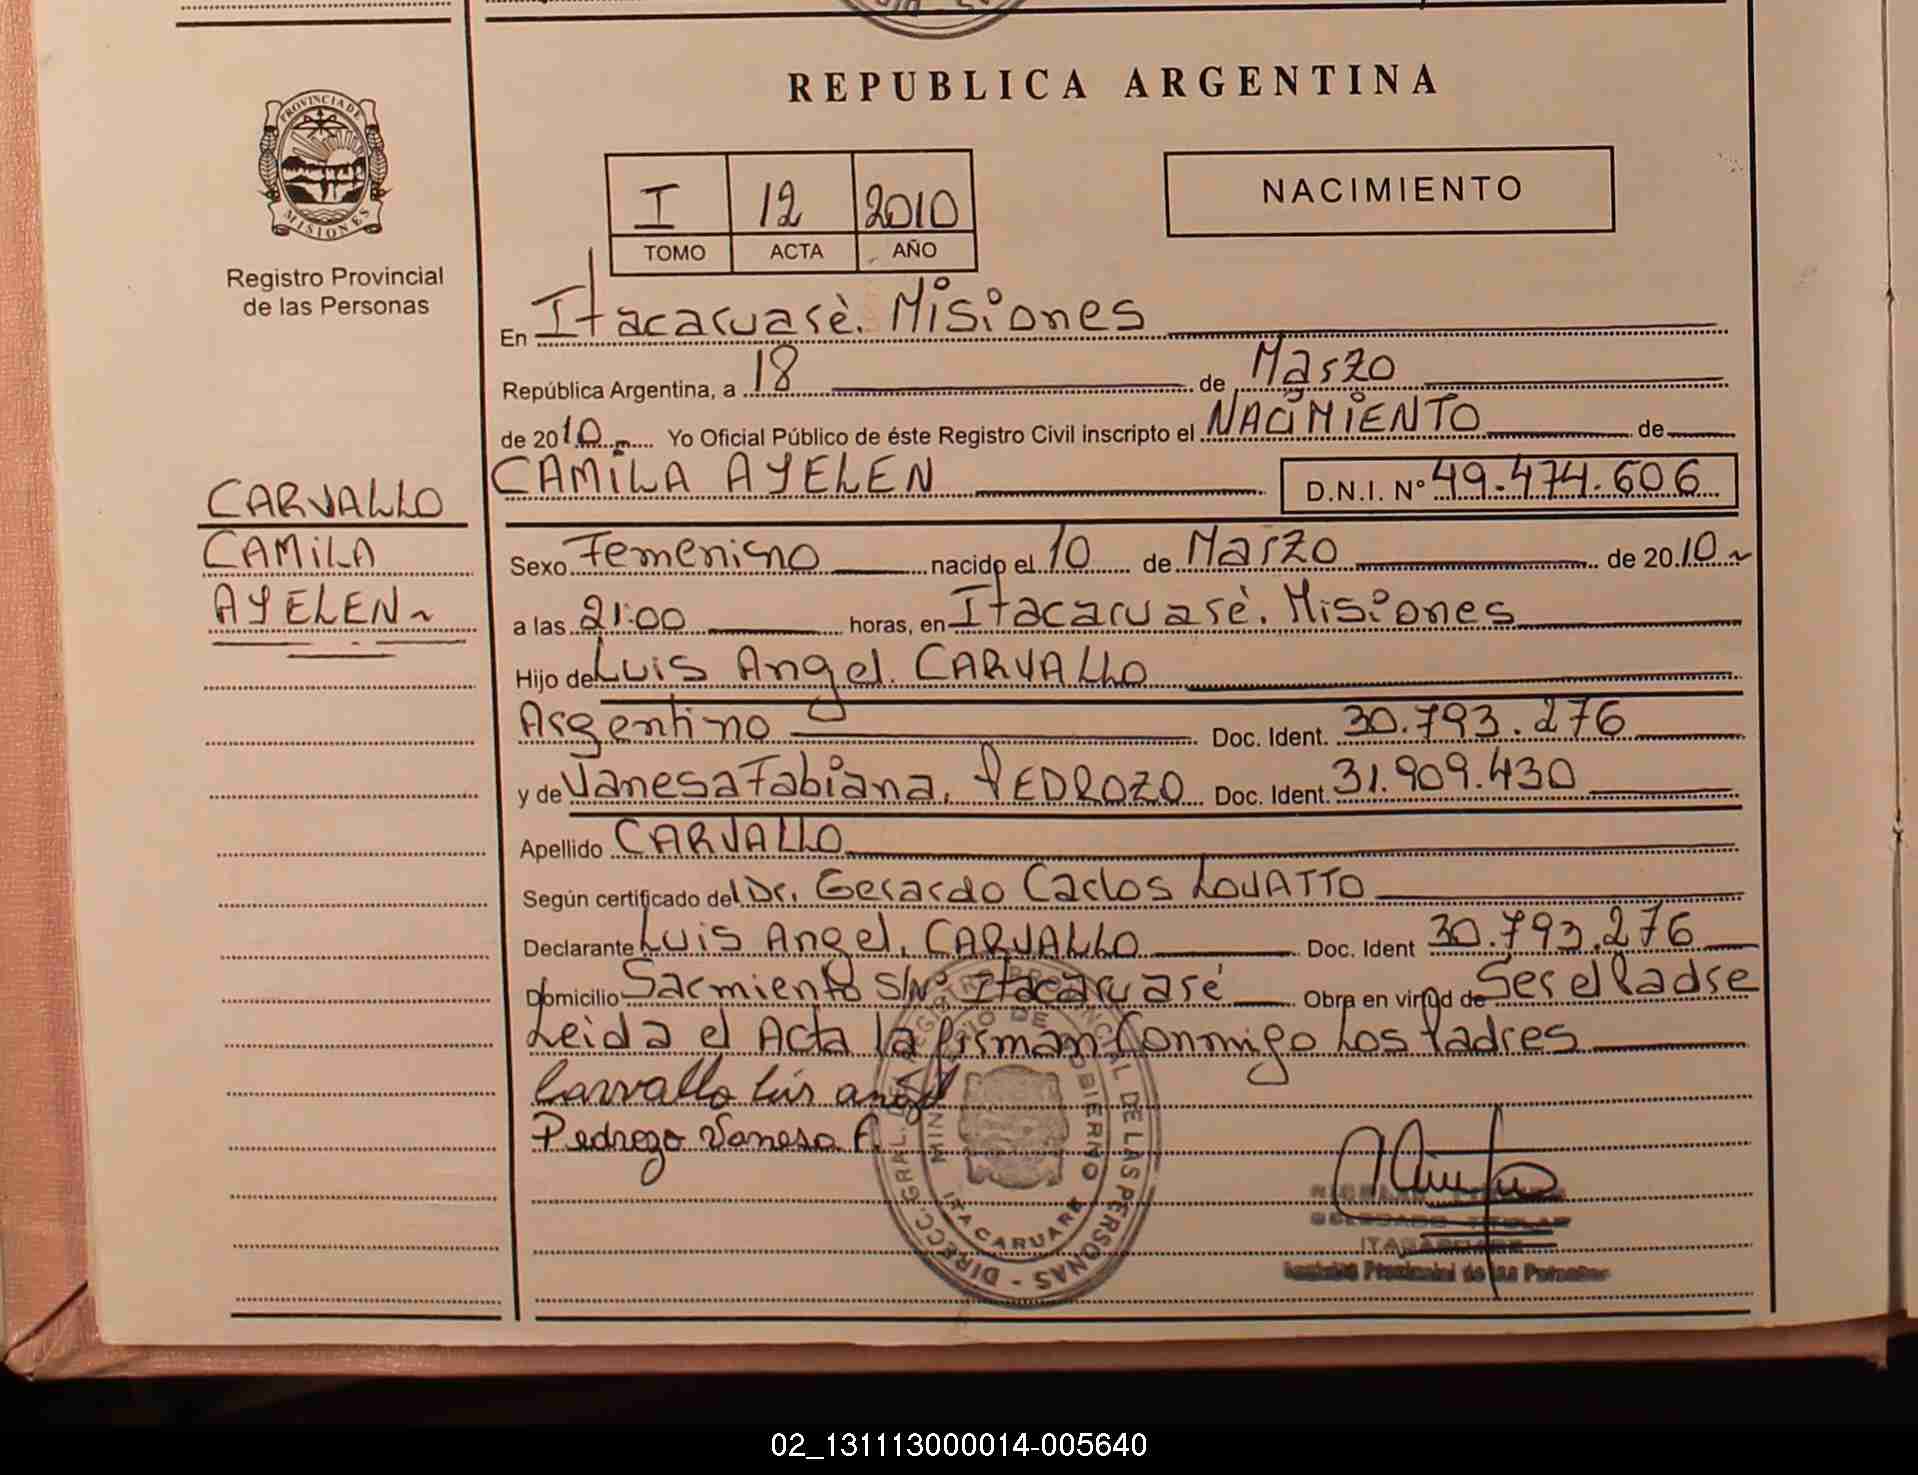 REPUBLICA ARGENTINA
PROVINCIA DE
MISIONES
Registro Provincial
de las Personas
I 12 2010
TOMO ACTA AÑO
NACIMIENTO
En Itacaruarè. Misiones
República Argentina, a 18 de Marzo
de 2010 Yo Oficial Público de éste Registro Civil inscripto el NACIMIENTO de
CAMILA AYELEN D.N.I. N° 49.474.606
CARVALLO
CAMILA
AYELEN
Sexo Femenino nacido el 10 de Marzo de 2010
a las 21:00 horas, en Itacaruarè. Misiones
Hijo de Luis Angel. CARVALLO
Argentino Doc. Ident. 30.793.276
y de Vanesa Fabiana, PEDROZO Doc. Ident. 31.909.430
Apellido CARVALLO
Según certificado del Dr. Gerardo Carlos LOVATTO
Declarante Luis Angel, CARVALLO Doc. Ident 30.793.276
Domicilio Sarmiento S/Nº Itacaruaré Obra en virtud de Ser el Padre
Leida el Acta la firman Conmigo Los Padres
Carvallo Luis angel
Pedrozo Vanesa F.
DIRECC. GRAL. DE REGISTRO PROVINCIAL DE LAS PERSONAS
MINISTERIO DE GOBIERNO
ITACARUARE
DELEGADO TITULAR
ITACARUARE
Registro Provincial de las Personas
02_131113000014-005640